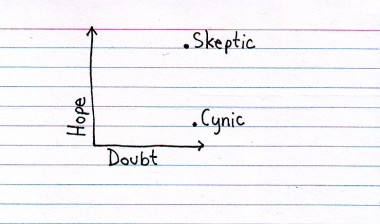 Skeptic
Cynic
Hope
Doubt